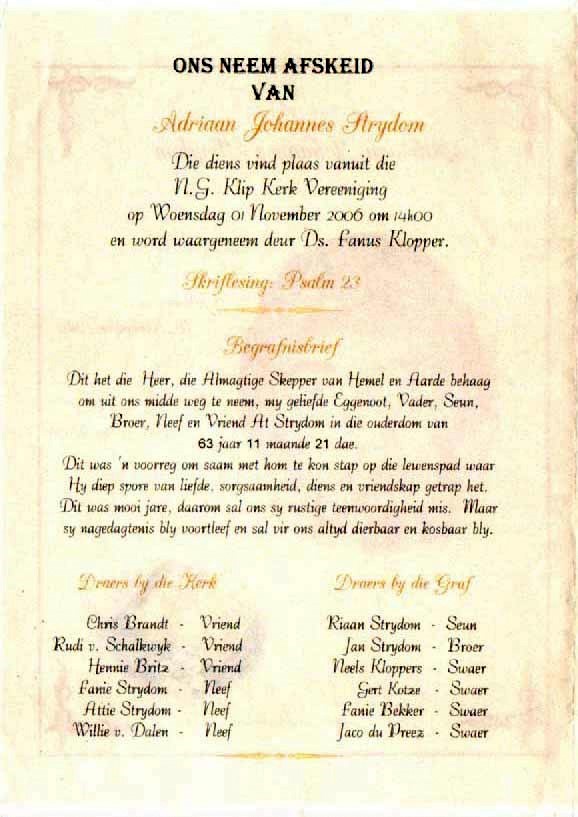 ONS NEEM AFSKEID
VAN
Adriaan Johannes Strydom
Die diens vind plaas vanuit die
N.G. Klip Kerk Vereeniging
op Woensdag 01 November 2006 om 14h00
en word waargeneem deur Ds. Fanus Klopper.
Skriflesing: Psalm 23
Begrafnisbrief
Dit het die Heer, die Almagtige Skepper van Hemel en Aarde behaag
om uit ons midde weg te neem, my geliefde Eggenoot, Vader, Seun,
Broer, Neef en Vriend At Strydom in die ouderdom van
63 jaar 11 maande 21 dae.
Dit was 'n voorreg om saam met hom te kon stap op die lewenspad waar
Hy diep spore van liefde, sorgsaamheid, diens en vriendskap getrap het.
Dit was mooi jare, daarom sal ons sy rustige teenwoordigheid mis. Maar
sy nagedagtenis bly voortleef en sal vir ons altyd dierbaar en kosbaar bly.
Draers by die Kerk
Chris Brandt - Vriend
Rudi v. Schalkwyk - Vriend
Hennie Britz - Vriend
Fanie Strydom - Neef
Attie Strydom - Neef
Willie v. Dalen - Neef
Draers by die Graf
Riaan Strydom - Seun
Jan Strydom - Broer
Neels Kloppers - Swaer
Gert Kotze - Swaer
Fanie Bekker - Swaer
Jaco du Preez - Swaer